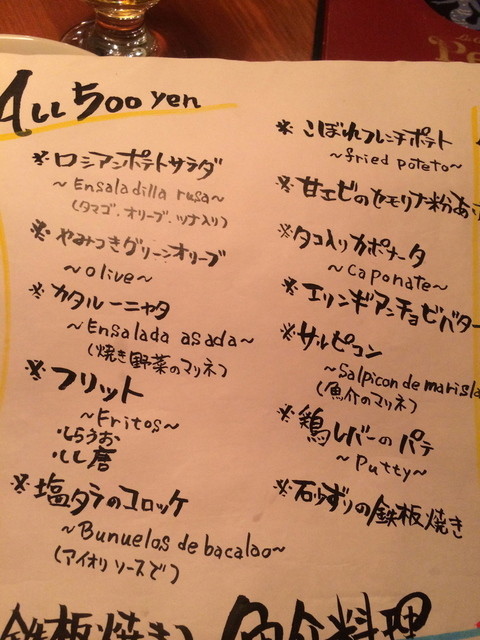 All 500 yen
※ ロシアンポテトサラダ
~Ensaladilla rusa~
(タマゴ・オリーブ・ツナ入り)
※ やみつきグリーンオリーブ
~olive~
※ カタルーニャタ
~Ensalada asada~
(焼き野菜のマリネ)
※ フリット
~Fritos~
・しらうお
・しし唐
※ 塩タラのコロッケ
~Bunuelos de bacalao~
(アイオリソースで)
※ こぼれフレンチポテト
~fried poteto~
※ 甘エビのセモリナ粉あ
※ タコ入りカポナータ
~caponate~
※ エリンギアンチョビバター
※ サルピコン
~Salpicon de marisla
(魚介のマリネ)
※ 鶏レバーのパテ
~Putty~
※ 石少ずりの鉄板焼き
鉄板焼き
魚介料理